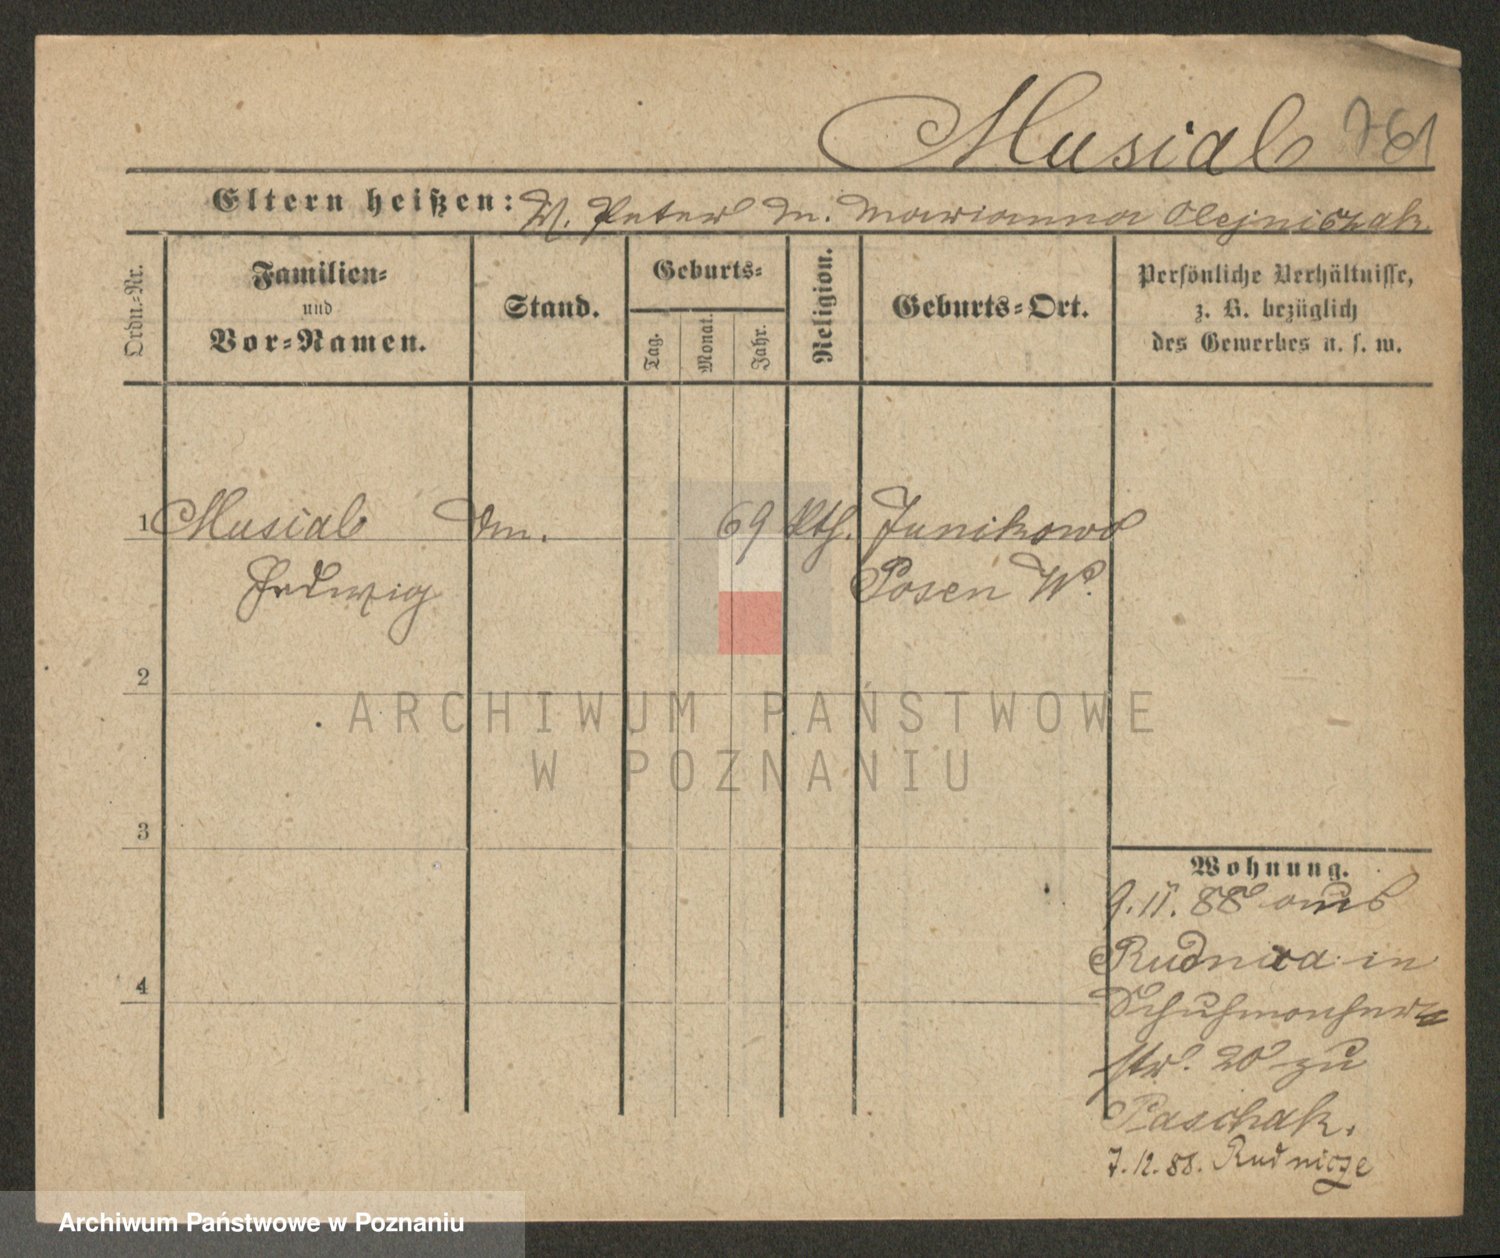 Musial 761
Eltern heißen: V. Peter M. Marianna Olejniczak
Ordn.-Nr.
Familien-
und
Vor-Namen.
Stand.
Geburts-
Tag.
Monat.
Jahr.
Religion.
Geburts-Ort.
Persönliche Verhältnisse,
z. B. bezüglich
des Gewerbes u. s. w.
1 Musial 69 Kth. Junikowo
Hedwig Posen W.
2
3
4
Wohnung.
9.11.88 aus
in
Schuhmacher
str. 20 zu
Paschak.
7.12.88. Rudnicze
ARCHIWUM PAŃSTWOWE
W POZNANIU
Archiwum Państwowe w Poznaniu